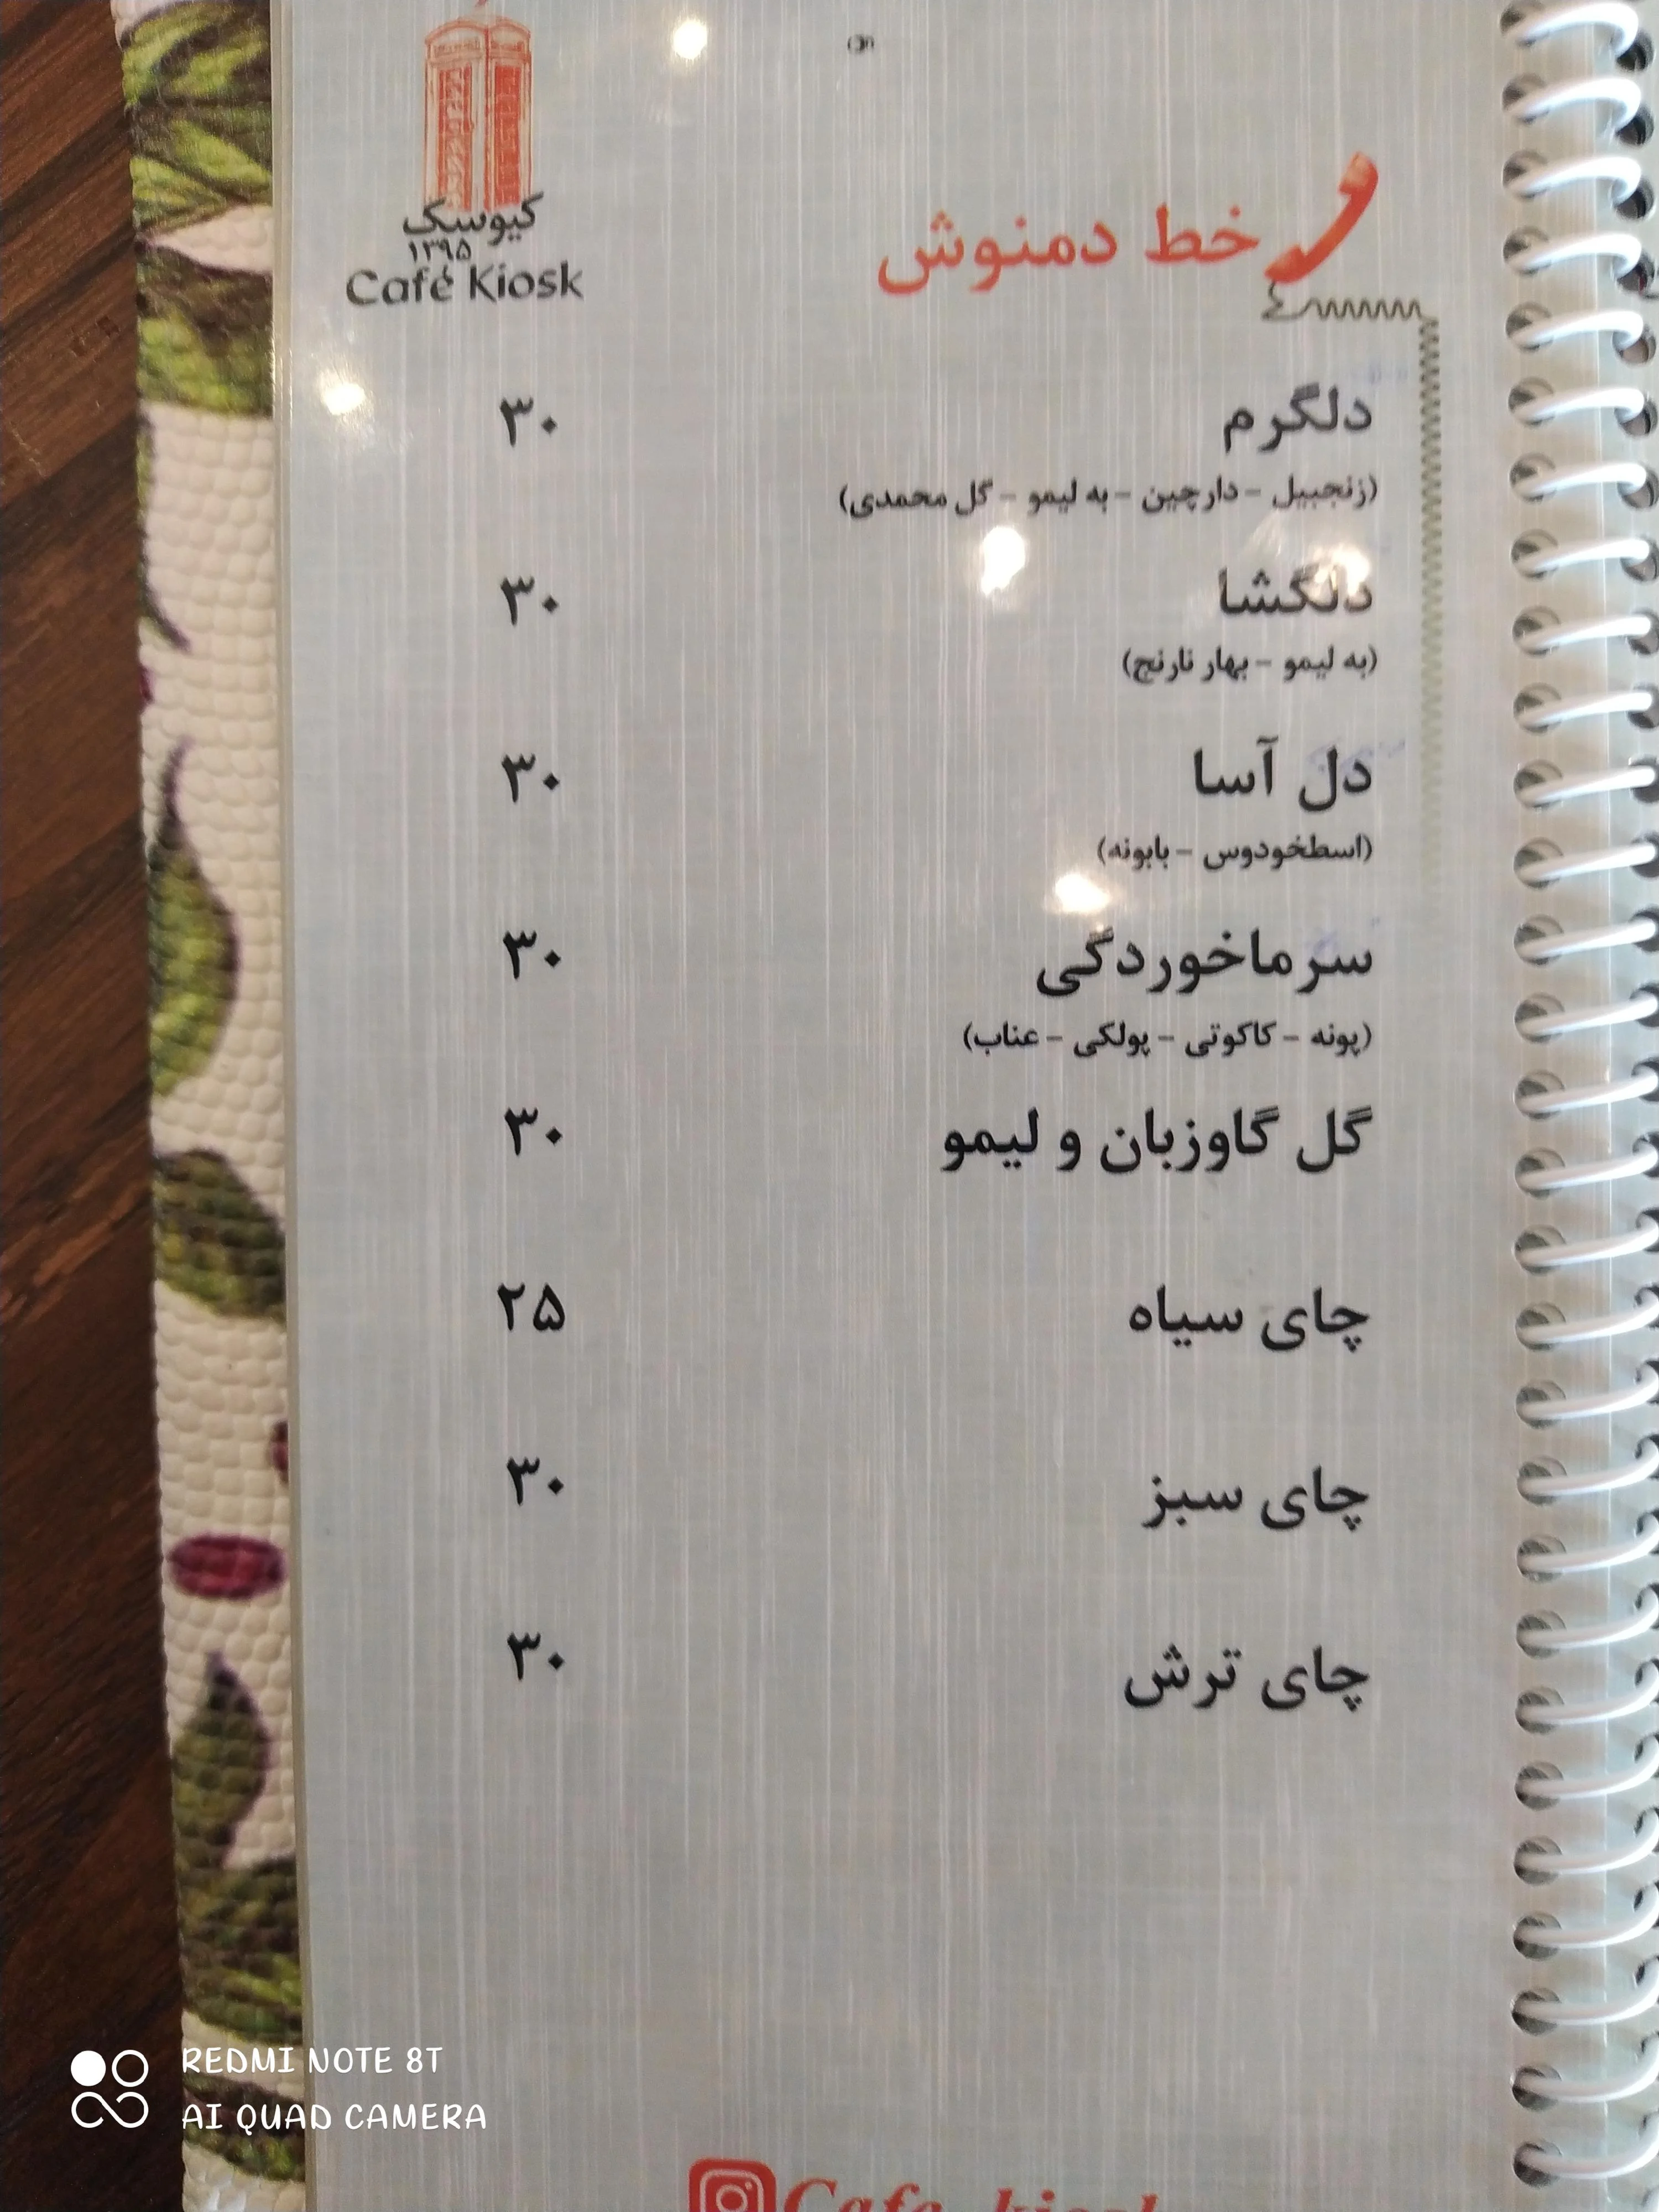 کیوسک
۱۳۹۵
Café Kiosk
خط دمنوش
دلگرم ۳۰
(زنجبیل - دارچین - به لیمو - گل محمدی)
دلگشا ۳۰
(به لیمو - بهار نارنج)
دل آسا ۳۰
(اسطخودوس - بابونه)
سرماخوردگی ۳۰
(پونه - کاکوتی - پولکی - عناب)
گل گاوزبان و لیمو ۳۰
چای سیاه ۲۵
چای سبز ۳۰
چای ترش ۳۰
REDMI NOTE 8T
AI QUAD CAMERA